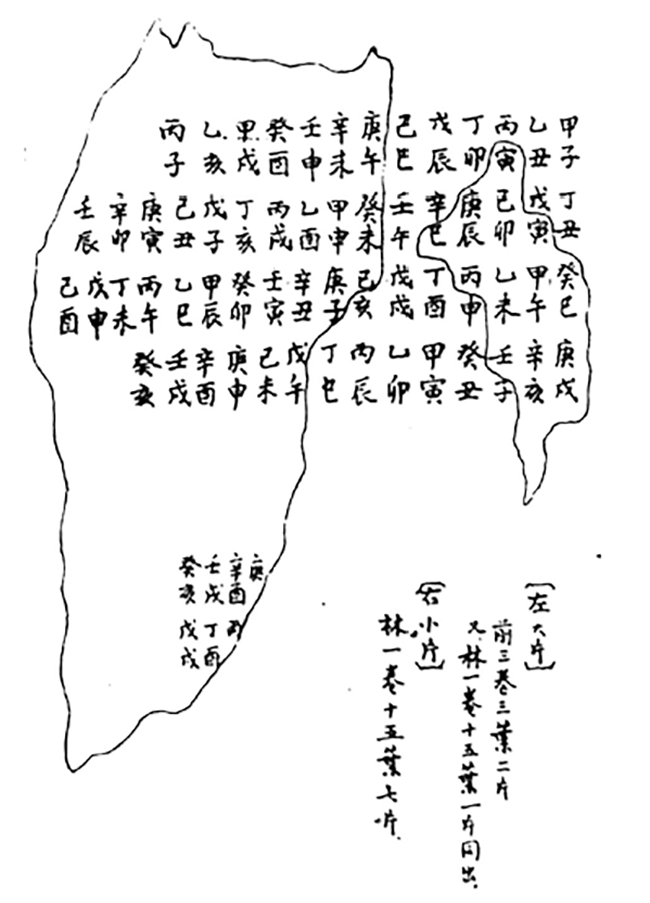 甲子乙丑丙寅丁卯戊辰己巳庚午辛未壬申癸酉甲戌乙亥丙子
丁丑戊寅己卯庚辰辛巳壬午癸未甲申乙酉丙戌丁亥戊子己丑庚寅辛卯壬辰
癸巳甲午乙未丙申丁酉戊戌己亥庚子辛丑壬寅癸卯甲辰乙巳丙午丁未戊申己酉
庚戌辛亥壬子癸丑甲寅乙卯丙辰丁巳戊午己未庚申辛酉壬戌癸亥
庚
辛酉丙
壬戌丁酉
癸亥戊戌
[左大片]
前三卷三葉二片
又林一卷十五葉一片同出.
[右小片]
林一卷十五葉七片.